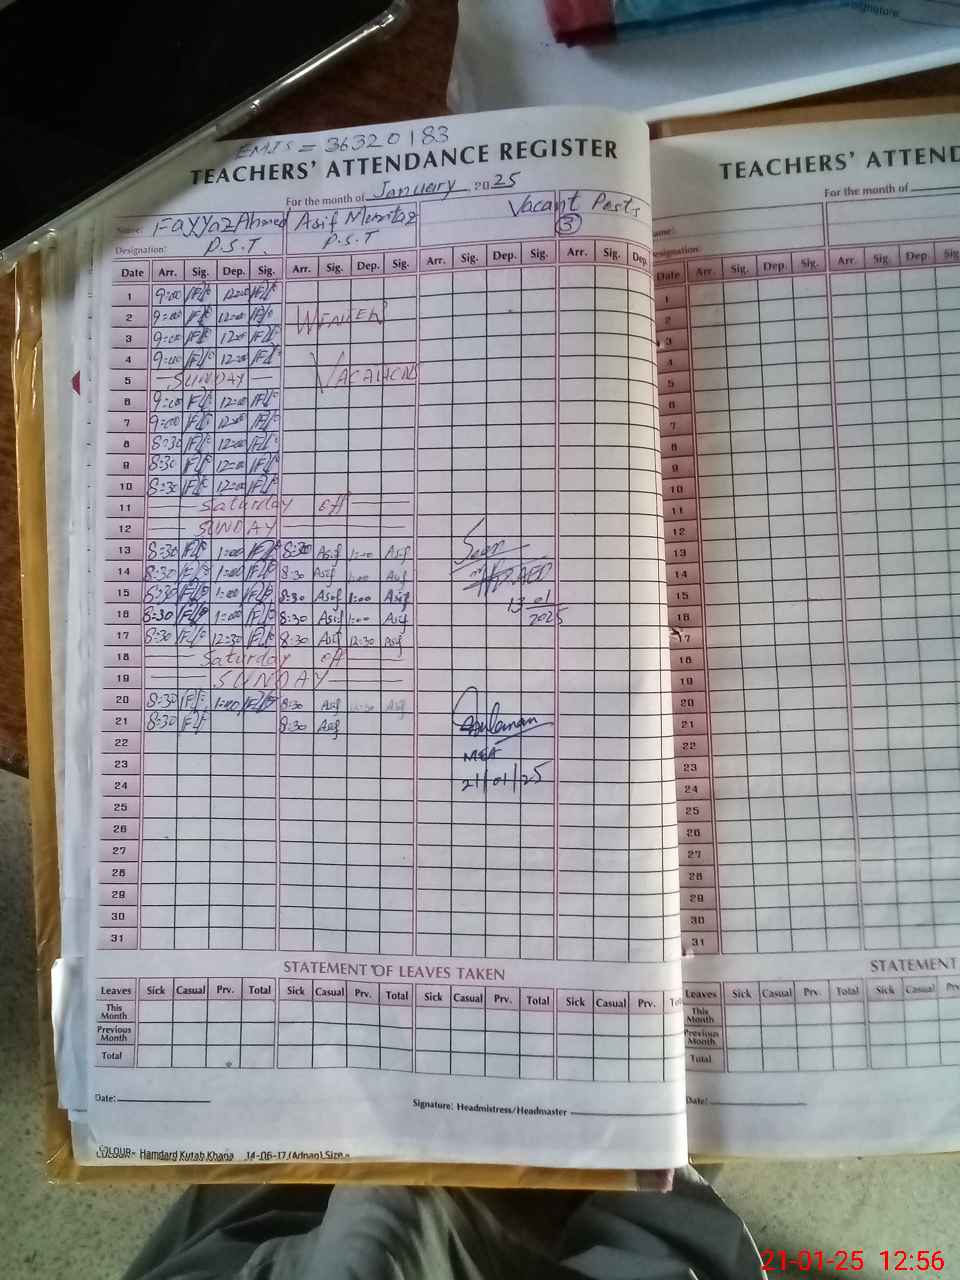 Signature
EMIS = 36320183
TEACHERS' ATTENDANCE REGISTER
For the month of January 2025
Name: Fayyaz Ahmed Asif Mumtaz Vacant Posts
Designation: P.S.T. P.S.T (3)
Date Arr. Sig. Dep. Sig. Arr. Sig. Dep. Sig. Arr. Sig. Dep. Sig. Arr. Sig. Dep.
1 9:00 12:00
2 9:00 12:00 WINTER
3 9:00 12:00
4 9:00 12:00
5 SUNDAY VACATIONS
6 9:00 12:00
7 9:00 12:00
8 8:30 12:00
9 8:30 12:00
10 8:30 12:00
11 Saturday off
12 SUNDAY
13 8:30 1:00 8:30 Asif 1:00 Asif Seen
14 8:30 1:00 8:30 Asif 1:00 Asif
15 8:30 1:00 8:30 Asif 1:00 Asif 13 01
16 8:30 1:00 8:30 Asif 1:00 Asif 2025
17 8:30 12:30 8:30 Asif 12:30 Asif
18 Saturday off
19 SUNDAY
20 8:30 1:00 8:30 Asif Asif
21 8:30 8:30 Asif
22 MEA
23 21/01/25
24
25
26
27
28
29
30
31
STATEMENT OF LEAVES TAKEN
Leaves Sick Casual Prv. Total Sick Casual Prv. Total Sick Casual Prv. Total Sick Casual Prv.
This Month
Previous Month
Total
Date: Signature: Headmistress/Headmaster
COLOUR- Hamdard Kutab Khana 14-06-17 (Adnan) Size
TEACHERS' ATTEND
For the month of
Designation:
Date Arr. Sig. Dep. Sig. Arr. Sig. Dep. Sig.
1
2
3
4
5
6
7
8
9
10
11
12
13
14
15
16
17
18
19
20
21
22
23
24
25
26
27
28
29
30
31
STATEMENT
Leaves Sick Casual Prv. Total Sick Casual
This Month
Previous Month
Total
Date:
21-01-25 12:56